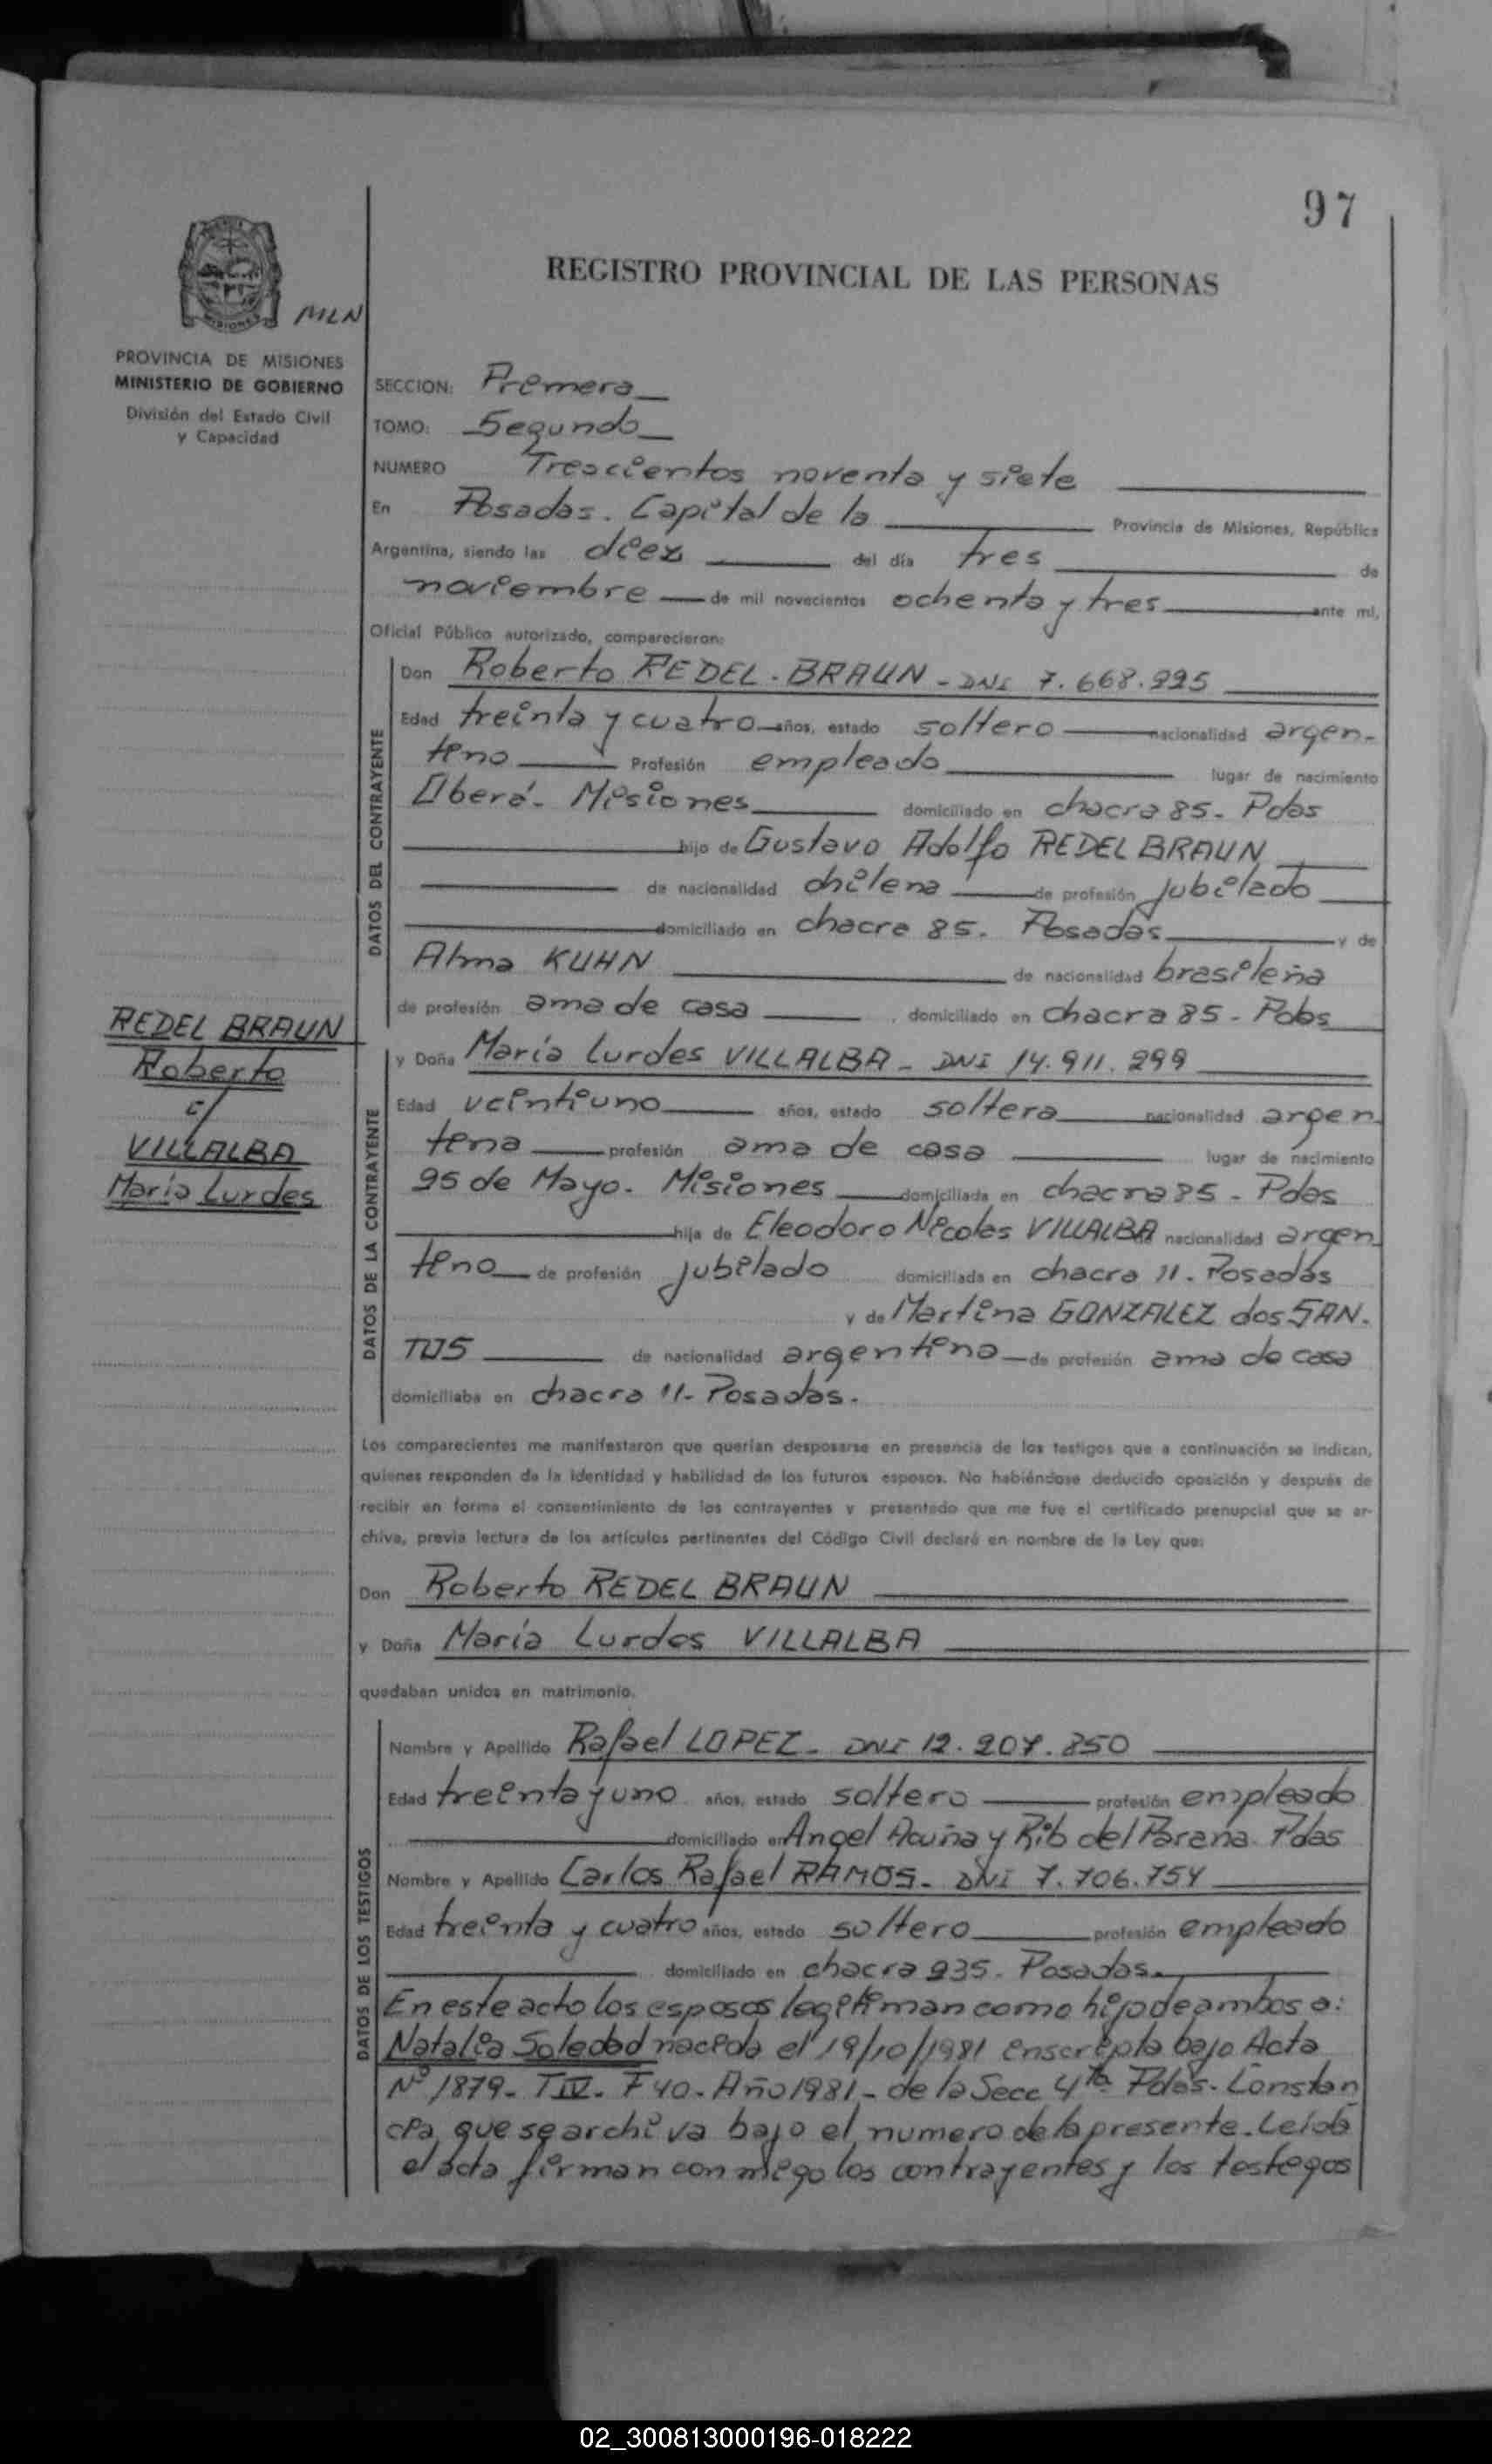 97
REGISTRO PROVINCIAL DE LAS PERSONAS
MISIONES
MLN
PROVINCIA DE MISIONES
MINISTERIO DE GOBIERNO
División del Estado Civil
y Capacidad
SECCION: Primera
TOMO: Segundo
NUMERO Trescientos noventa y siete
En Posadas. Capital de la Provincia de Misiones, República
Argentina, siendo las diez del día tres de
noviembre de mil novecientos ochenta y tres ante mí,
Oficial Público autorizado, comparecieron:
DATOS DEL CONTRAYENTE
Don Roberto REDEL-BRAUN - DNI 7.668.225
Edad treinta y cuatro años, estado soltero nacionalidad argen-
tino Profesión empleado lugar de nacimiento
Oberá- Misiones domiciliado en chacra 85. Pdas
hijo de Gustavo Adolfo REDEL BRAUN
de nacionalidad chilena de profesión jubilado
domiciliado en chacra 85. Posadas y de
Alma KUHN de nacionalidad brasileña
de profesión ama de casa domiciliado en chacra 85 - Pdas
REDEL BRAUN
Roberto
c/
VILLALBA
María Lurdes
DATOS DE LA CONTRAYENTE
y Doña María Lurdes VILLALBA - DNI 14.911.299
Edad veintiuno años, estado soltera nacionalidad argen
tina profesión ama de casa lugar de nacimiento
25 de Mayo. Misiones domiciliada en chacra 85 - Pdas
hija de Eleodoro Nicolas VILLALBA de nacionalidad argen
tino de profesión jubilado domiciliada en chacra 11. Posadas
y de Martina GONZALEZ dos SAN-
TOS de nacionalidad argentina de profesión ama de casa
domiciliaba en chacra 11- Posadas.
Los comparecientes me manifestaron que querían desposarse en presencia de los testigos que a continuación se indican,
quienes responden de la identidad y habilidad de los futuros esposos. No habiéndose deducido oposición y después de
recibir en forma el consentimiento de los contrayentes y presentado que me fue el certificado prenupcial que se ar-
chiva, previa lectura de los artículos pertinentes del Código Civil declaré en nombre de la Ley que:
Don Roberto REDEL BRAUN
y Doña María Lurdes VILLALBA
quedaban unidos en matrimonio.
DATOS DE LOS TESTIGOS
Nombre y Apellido Rafael LOPEZ - DNI 12.207.850
Edad treinta y uno años, estado soltero profesión empleado
domiciliado en Angel Acuña y Rib del Parana. Pdas
Nombre y Apellido Carlos Rafael RAMOS - DNI 7.706.754
Edad treinta y cuatro años, estado soltero profesión empleado
domiciliado en chacra 235. Posadas.
En este acto los esposos legitiman como hijo de ambos a:
Natalia Soledad nacida el 19/10/1981 inscripta bajo Acta
Nº 1879 - T IV. F 40 - Año 1981 - de la Secc 4ta Pdas. Constan
cia que se archiva bajo el numero de la presente. Leída
el acta firman conmigo los contrayentes y los testigos
02_300813000196-018222